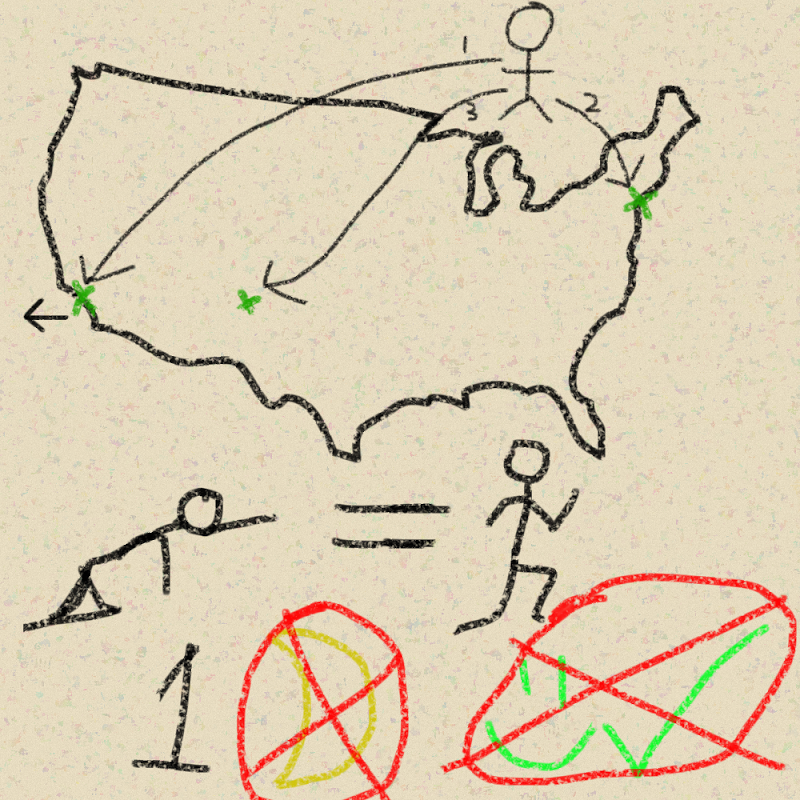 1
2
3
=
1